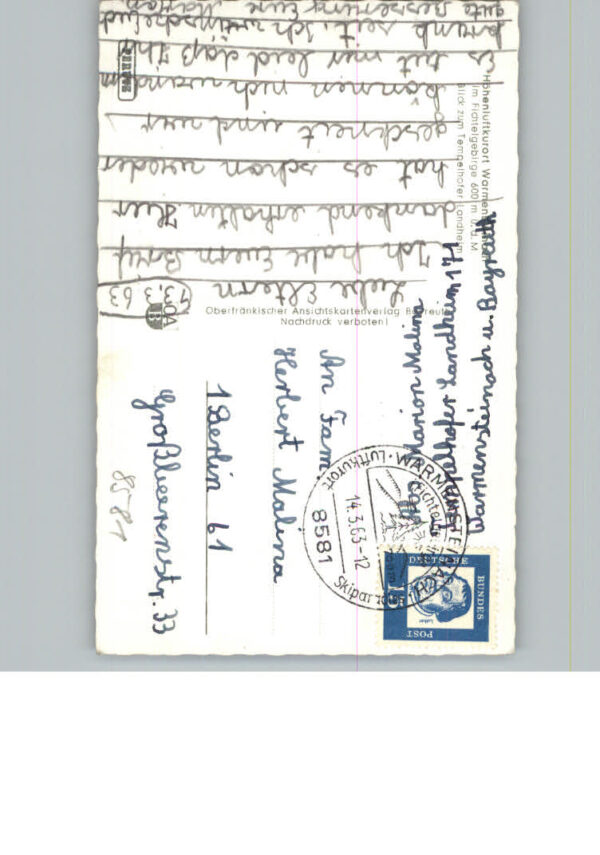 13.3.63
Liebe Eltern
Ich habe Euern Brief
dankend erhalten Hier
hat es schon wieder
geschneit und wir
können nicht wandern
Es tut mir leid daß Ihr
krank seit. Ich wünsche Euch
gute Besserung Eure Marion
Höhenluftkurort Warmensteinach
im Fichtelgebirge 600 m ü. d. M.
Blick zum Tempelhofer Landheim
Oberfränkischer Ansichtskartenverlag Bayreuth
Nachdruck verboten!
Marion Malina
Landheim 171
Warmensteinach ü. Bayreuth
An Fam.
Herbert Malina
1 Berlin 61
Großbeerenstr. 33
8581
WARMENSTEINACH
Luftkurort
14.3.63-12
8581
DEUTSCHE
BUNDES
POST
15
Luther